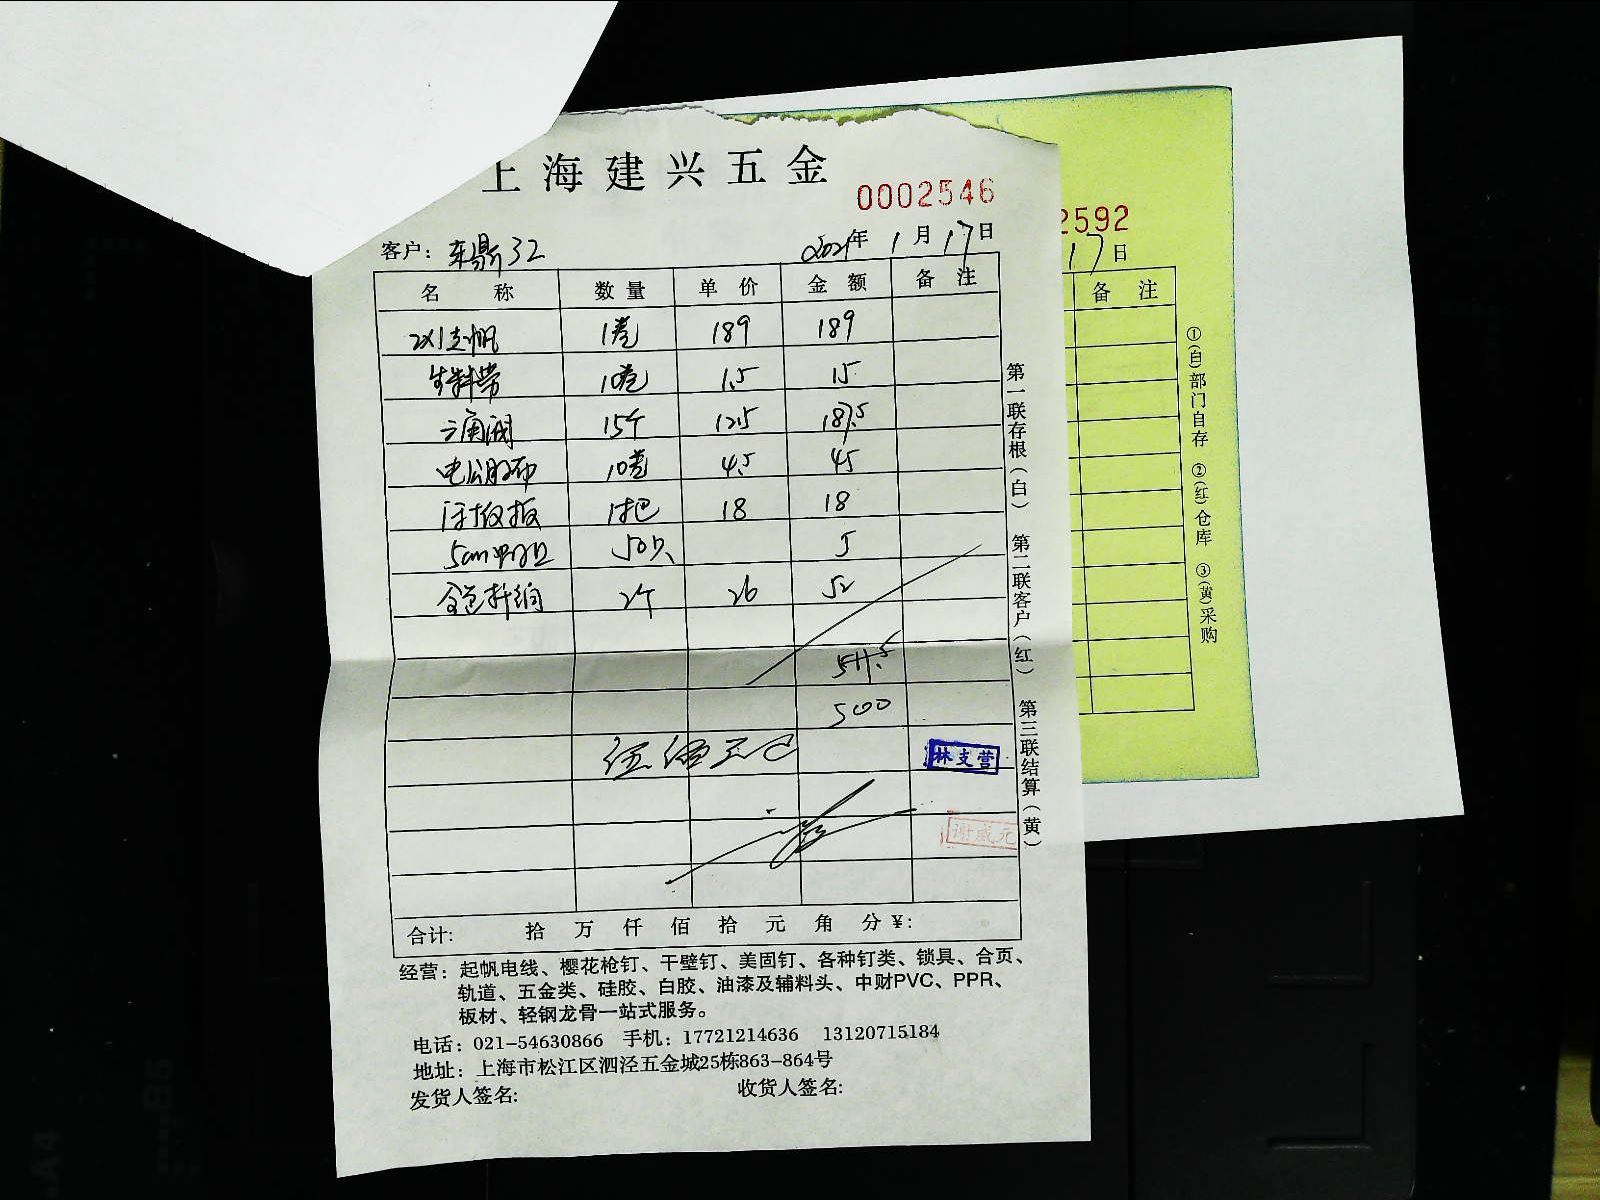 上海建兴五金
0002546
2592
客户: 东鼎32 2021年1月17日
17日
名称 数量 单价 金额 备注
备注
2X1起帆 1卷 189 189
生料带 10卷 1.5 15
三角阀 15个 12.5 187.5
电公胶布 10卷 4.5 45
1把 18 18
5cm 50只 5
2个 26 52
511.5
500
伍佰元
林支营
谢咸元
合计: 拾万仟佰拾元角分¥:
第一联存根(白) 第二联客户(红) 第三联结算(黄)
①(白)部门自存 ②(红)仓库 ③(黄)采购
经营: 起帆电线、樱花枪钉、干壁钉、美固钉、各种钉类、锁具、合页、
轨道、五金类、硅胶、白胶、油漆及辅料头、中财PVC、PPR、
板材、轻钢龙骨一站式服务。
电话: 021-54630866 手机: 17721214636 13120715184
地址: 上海市松江区泗泾五金城25栋863-864号
发货人签名: 收货人签名: